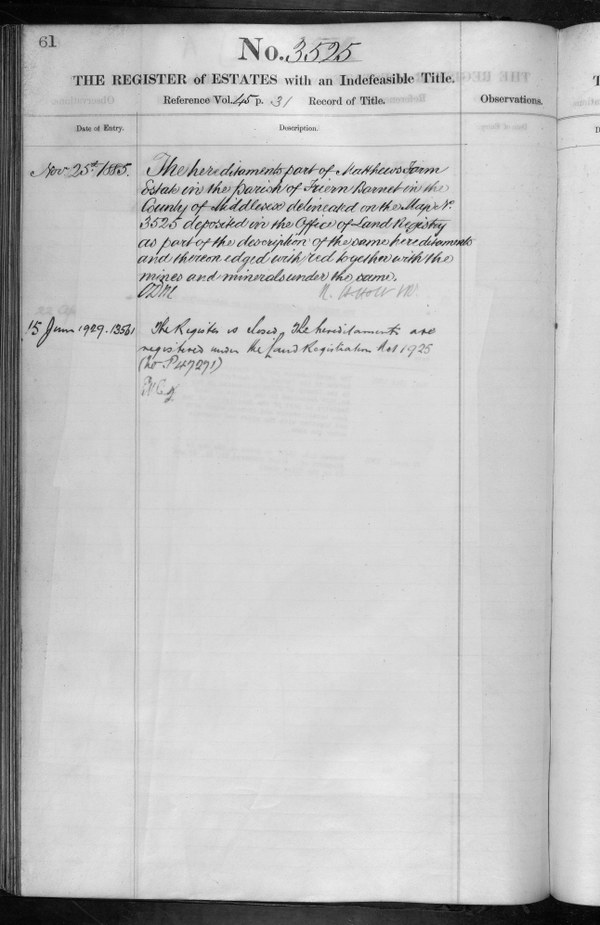 61
No. 3525
THE REGISTER of ESTATES with an Indefeasible Title.
Reference Vol. 45 p. 31 Record of Title.
Observations.
Date of Entry.
Description.
Nov. 25th 1885.
The hereditaments part of Matthews Farm
Estate in the Parish of Friern Barnet in the
County of Middlesex delineated on the Map No.
3525 deposited in the Office of Land Registry
as part of the description of the same hereditaments
and thereon edged with red together with the
mines and minerals under the same.
15 June 1929.
The Register is closed, The hereditaments are
registered under the Land Registration Act 1925
(No P47271)